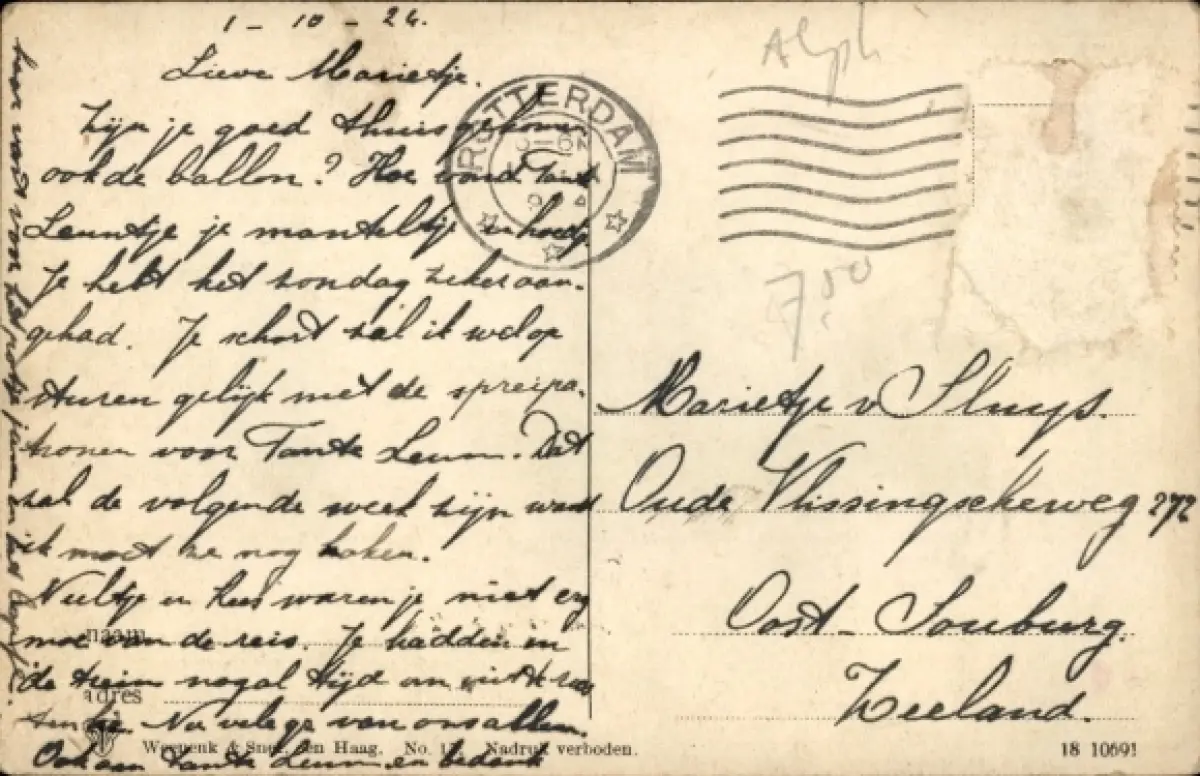 1 - 10 - 24.
Lieve Marietje.
Zijn je goed thuisgekomen
ook de ballon? Hoe vond Tante
Leuntje je manteltje en hoedje
Je hebt het zondag zeker aan-
gehad. Je schort zal ik wel op
sturen gelijk met de spreipa-
tronen voor Tante Leun. Dat
zal de volgende week zijn want
ik moet ze nog haken.
en Kees waren je niet erg
moe van de reis. Je hadden in
de trein nogal tijd om uit te
Nu vele gr van ons allen.
Ook aan Tante Leun en bedank
haar voor het potje jam en het
naam
adres
ROTTERDAM
Alph
7.50
Marietje v Sluys.
Oude Vlissingscheweg 272
Oost-Souburg.
Zeeland.
Weenenk & Snel, Den Haag. No. Nadruk verboden.
18 10691